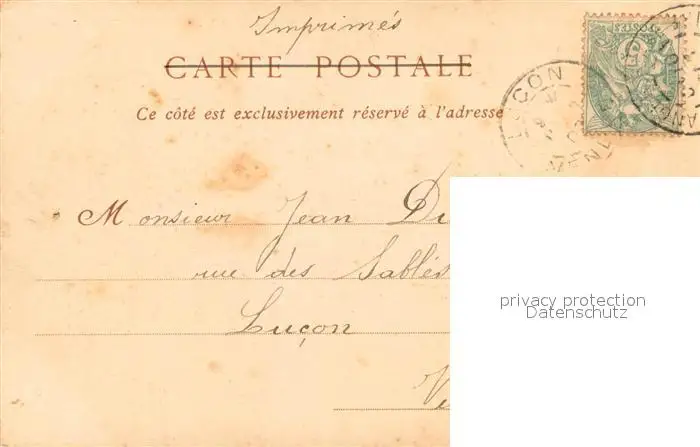 Imprimés
CARTE POSTALE
Ce côté est exclusivement réservé à l'adresse
POSTES
LUÇON
VEND
Monsieur Jean Du
rue des Sables
Luçon
Ve
privacy protection
Datenschutz